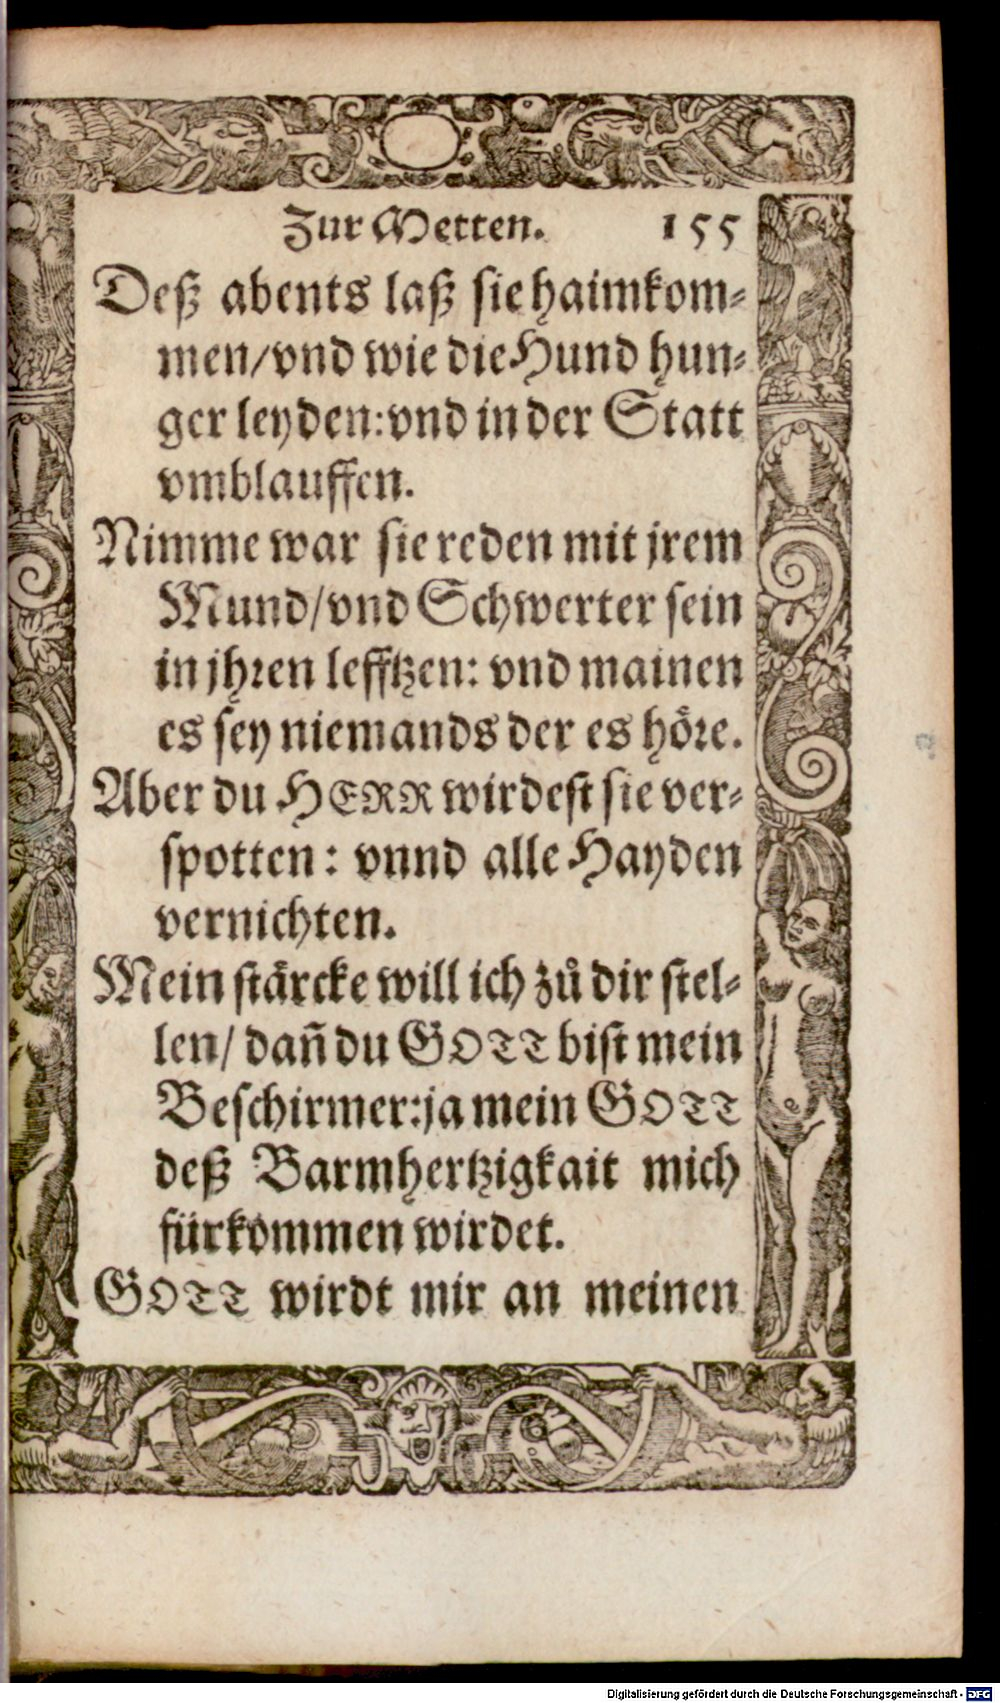 Zur Metten. 155
Deß abents laß sie haimkom⸗
men/vnd wie die Hund hun⸗
ger leyden: vnd in der Statt
vmblauffen.
Nimme war sie reden mit jrem
Mund/vnd Schwerter sein
in jhren lefftzen: vnd mainen
es sey niemands der es höre.
Aber du HERR wirdest sie ver⸗
spotten: vnnd alle Hayden
vernichten.
Mein stärcke will ich zů dir stel⸗
len/ dañ du GOTT bist mein
Beschirmer: ja mein GOTT
deß Barmhertzigkait mich
fürkommen wirdet.
GOTT wirdt mir an meinen
Digitalisierung gefördert durch die Deutsche Forschungsgemeinschaft - DFG